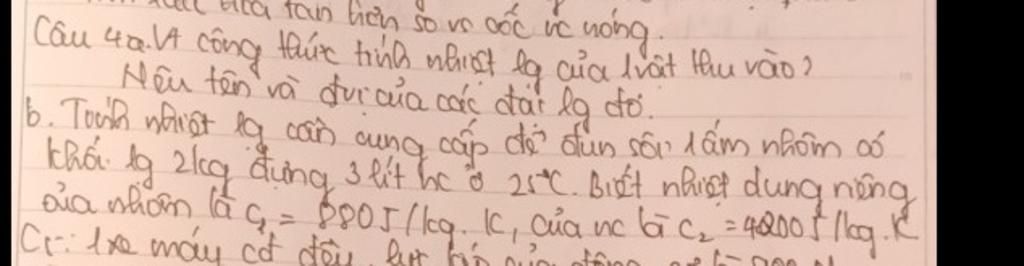 hòa tan hơn so vs cốc nc nóng.
Câu 4a. Vt công thức tính nhiệt lg của 1 vật thu vào?
Nêu tên và đvị của các đại lg đó.
b. Tính nhiệt lg cần cung cấp để đun sôi 1 ấm nhôm có
khối lg 2kg đựng 3 lít nc ở 25°C. Biết nhiệt dung riêng
của nhôm là c₁ = 880J/kg.K, của nc là c₂ = 4200J/kg.K
1 xe máy cđ đều, lực